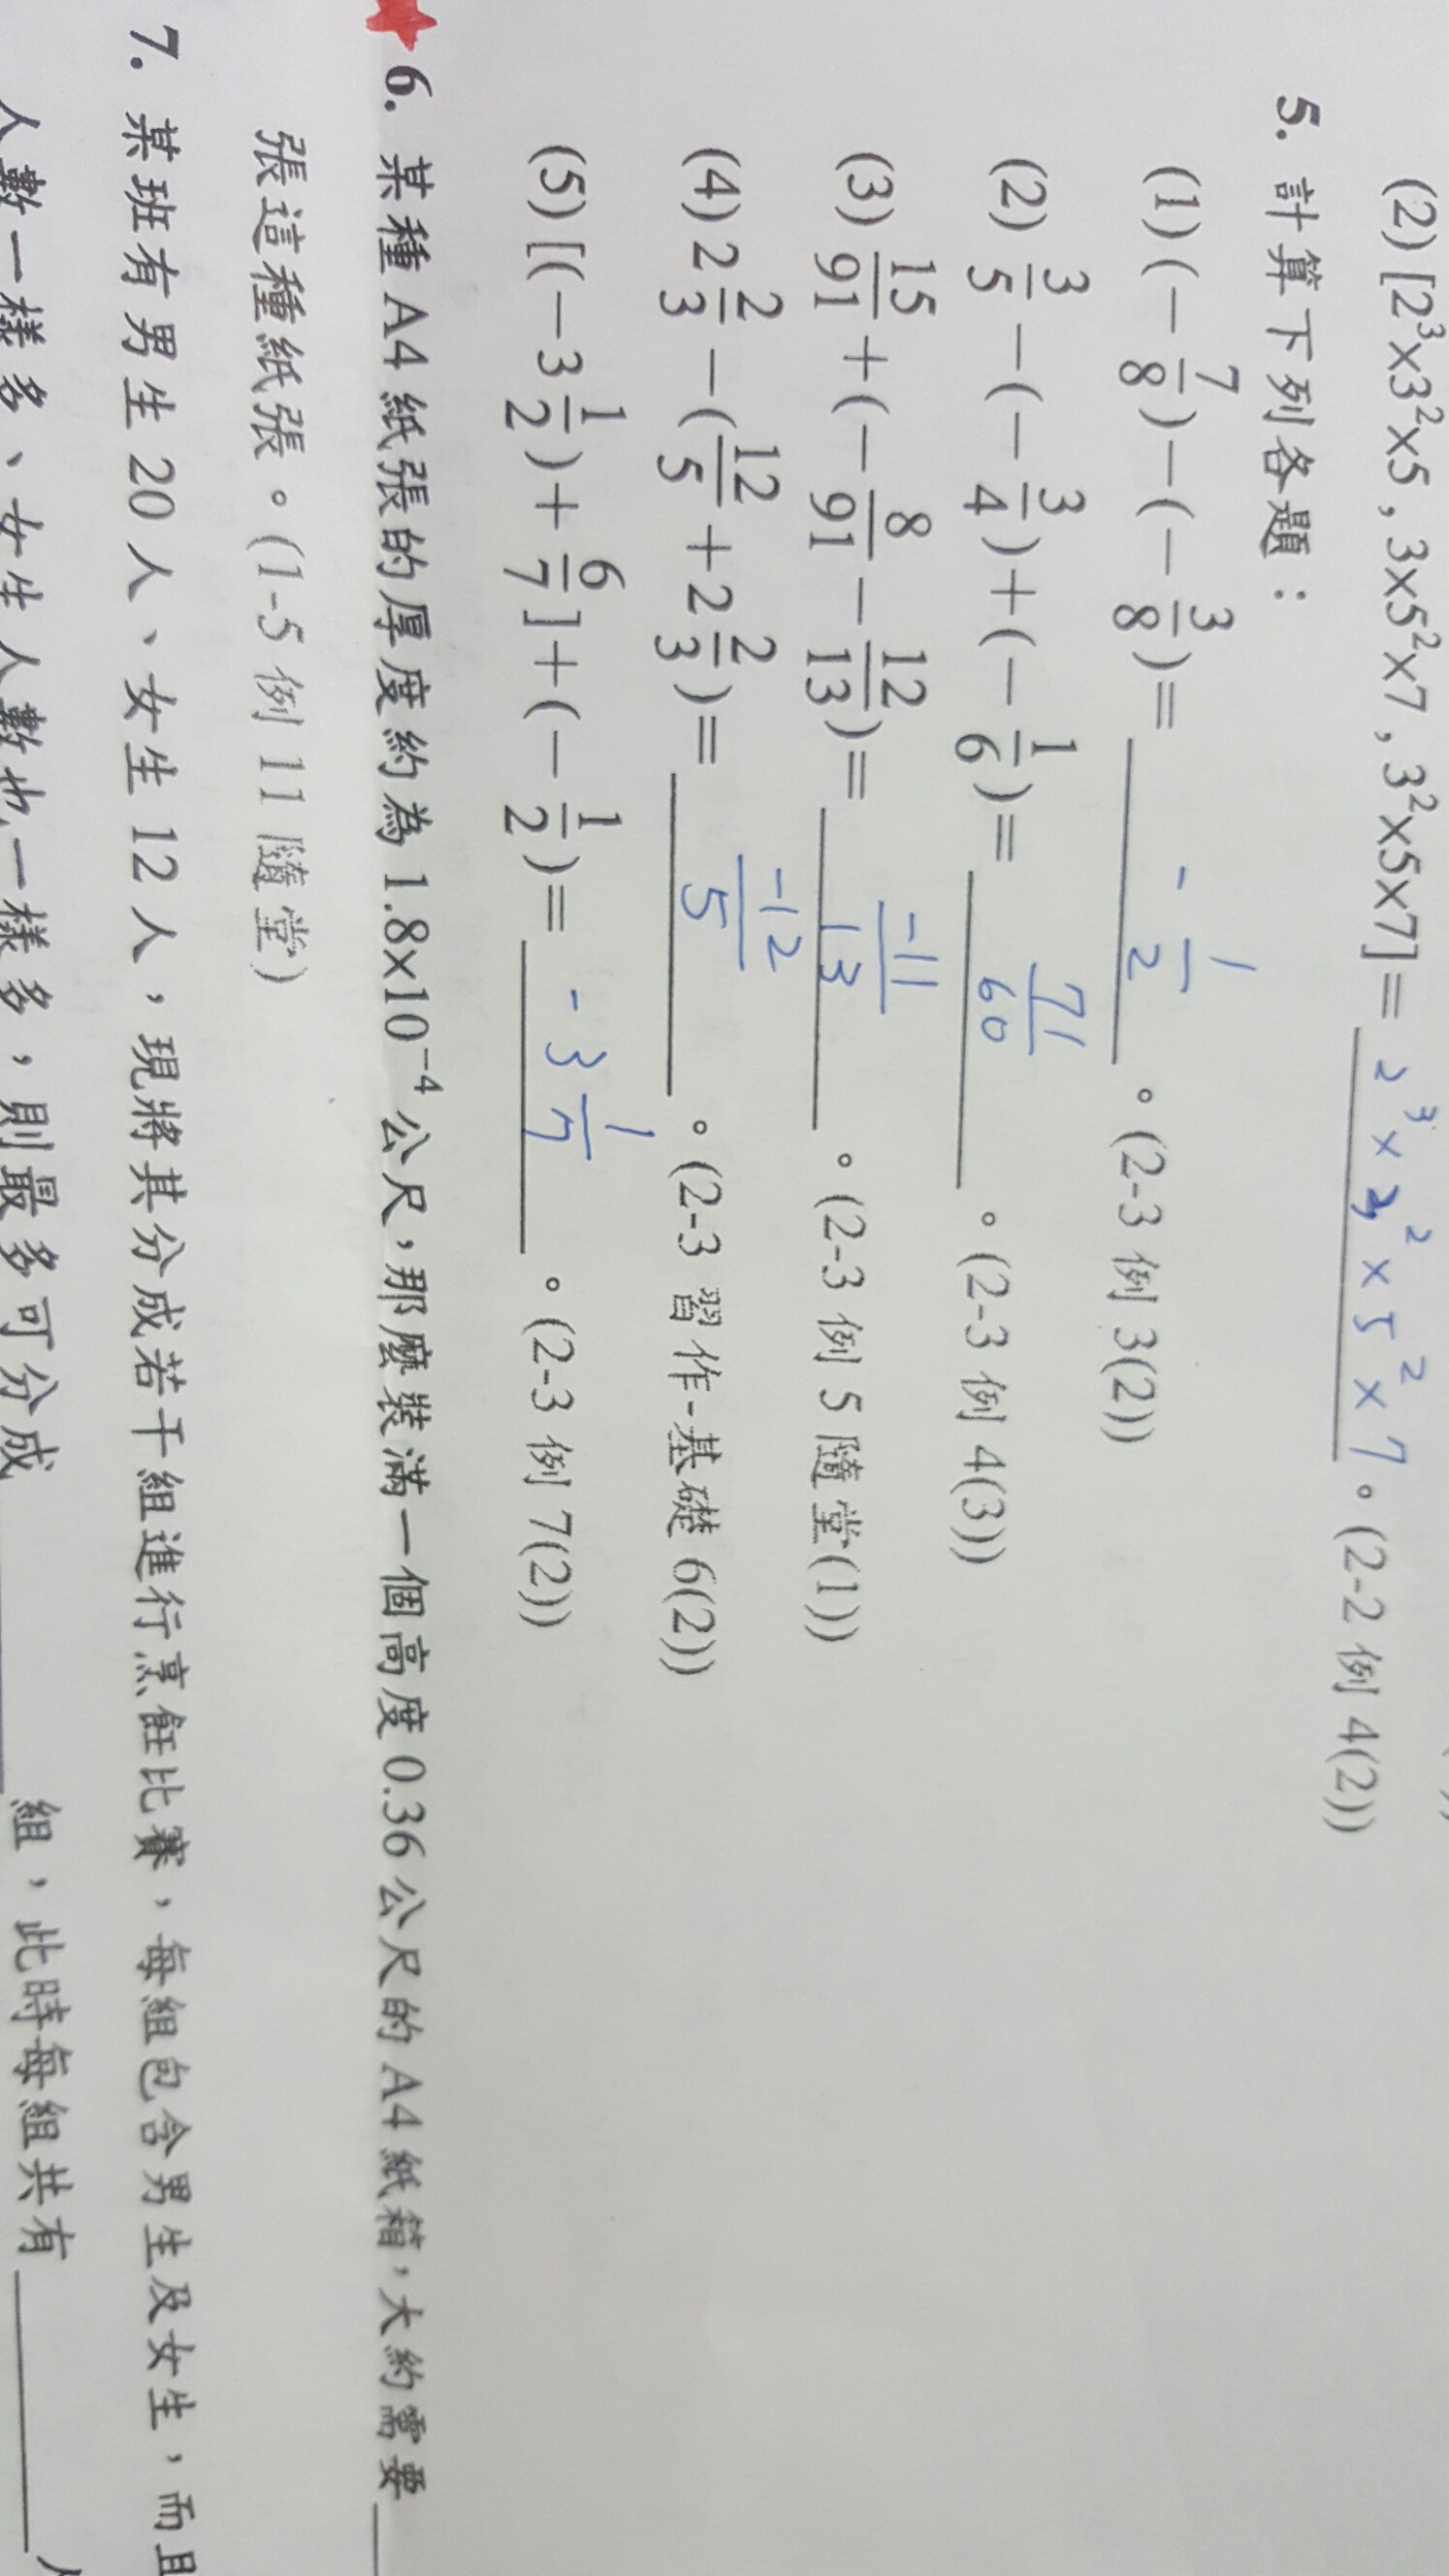 (2) [2³×3²×5 , 3×5²×7 , 3²×5×7] = 2³×3²×5²×7 。(2-2 例 4(2))
5. 計算下列各題：
(1) (－7/8)－(－3/8)= －1/2 。(2-3 例 3(2))
(2) 3/5－(－3/4)＋(－1/6)= 71/60 。(2-3 例 4(3))
(3) 15/91＋(－8/91－12/13)= －11/13 。(2-3 例 5 隨堂(1))
(4) 2 2/3－(12/5＋2 2/3)= －12/5 。(2-3 習作-基礎 6(2))
(5) [(－3 1/2)＋6/7]＋(－1/2)= －3 1/7 。(2-3 例 7(2))
6. 某種 A4 紙張的厚度約為 1.8×10⁻⁴ 公尺，那麼裝滿一個高度 0.36 公尺的 A4 紙箱，大約需要
張這種紙張。(1-5 例 11 隨堂)
7. 某班有男生 20 人、女生 12 人，現將其分成若干組進行烹飪比賽，每組包含男生及女生，而且
人數一樣多、女生人數也一樣多，則最多可分成 組，此時每組共有